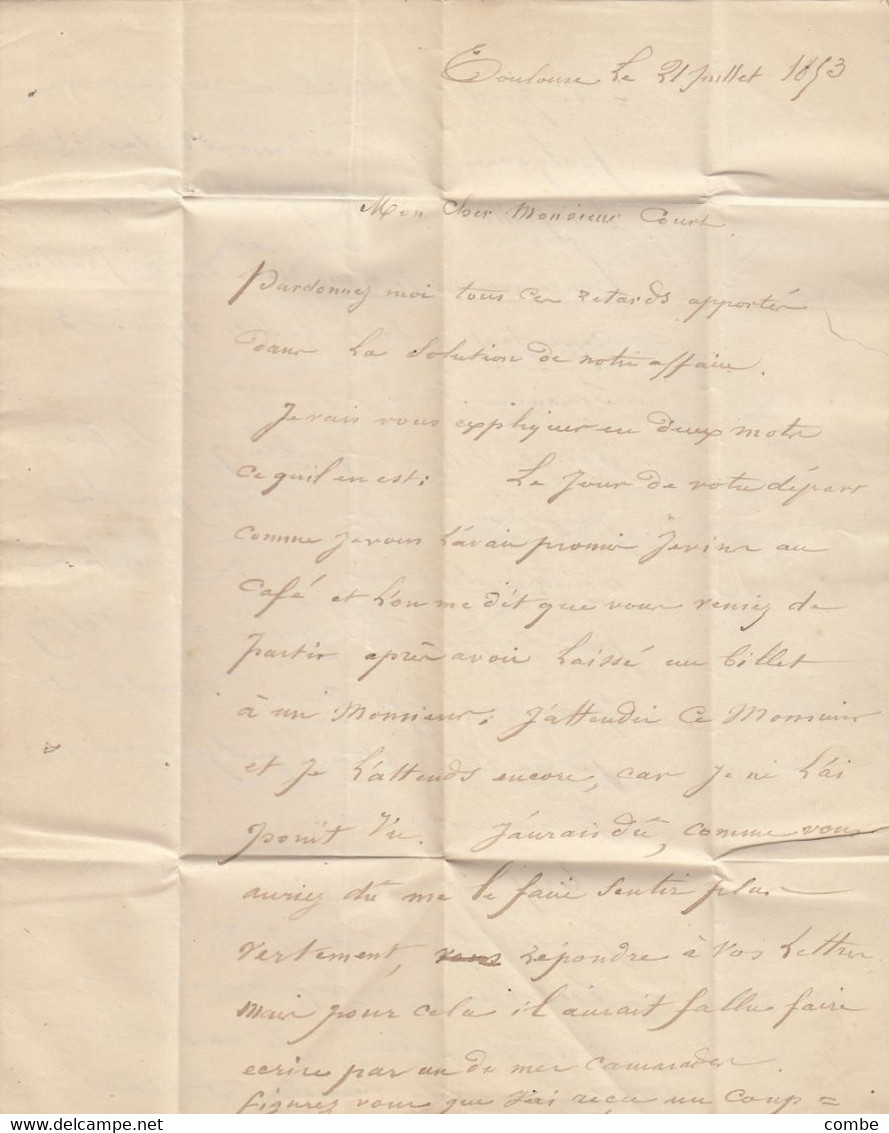 Toulouse Le 21 Juillet 1853
Mon Cher Monsieur Court
Pardonnez moi tous ces retards apportés
dans La Solution de notre affaire.
Je vais vous expliquer en deux mots
ce qu'il en est: Le Jour de votre départ
comme Je vous L'avais promis Je vins au
Café et L'on me dit que vous veniez de
partir après avoir Laissé un billet
à un Monsieur; J'attendis Ce Monsieur
et Je L'attends encore, car Je ne L'ai
point Vu. J'aurais dû, comme vous
auriez dû me le faire Sentir plus
Vertement, vous répondre à Vos Lettres
Mais pour cela il aurait fallu faire
ecrire par un de mes Camarades.
figurez vous que J'ai reçu un Coup =
combe